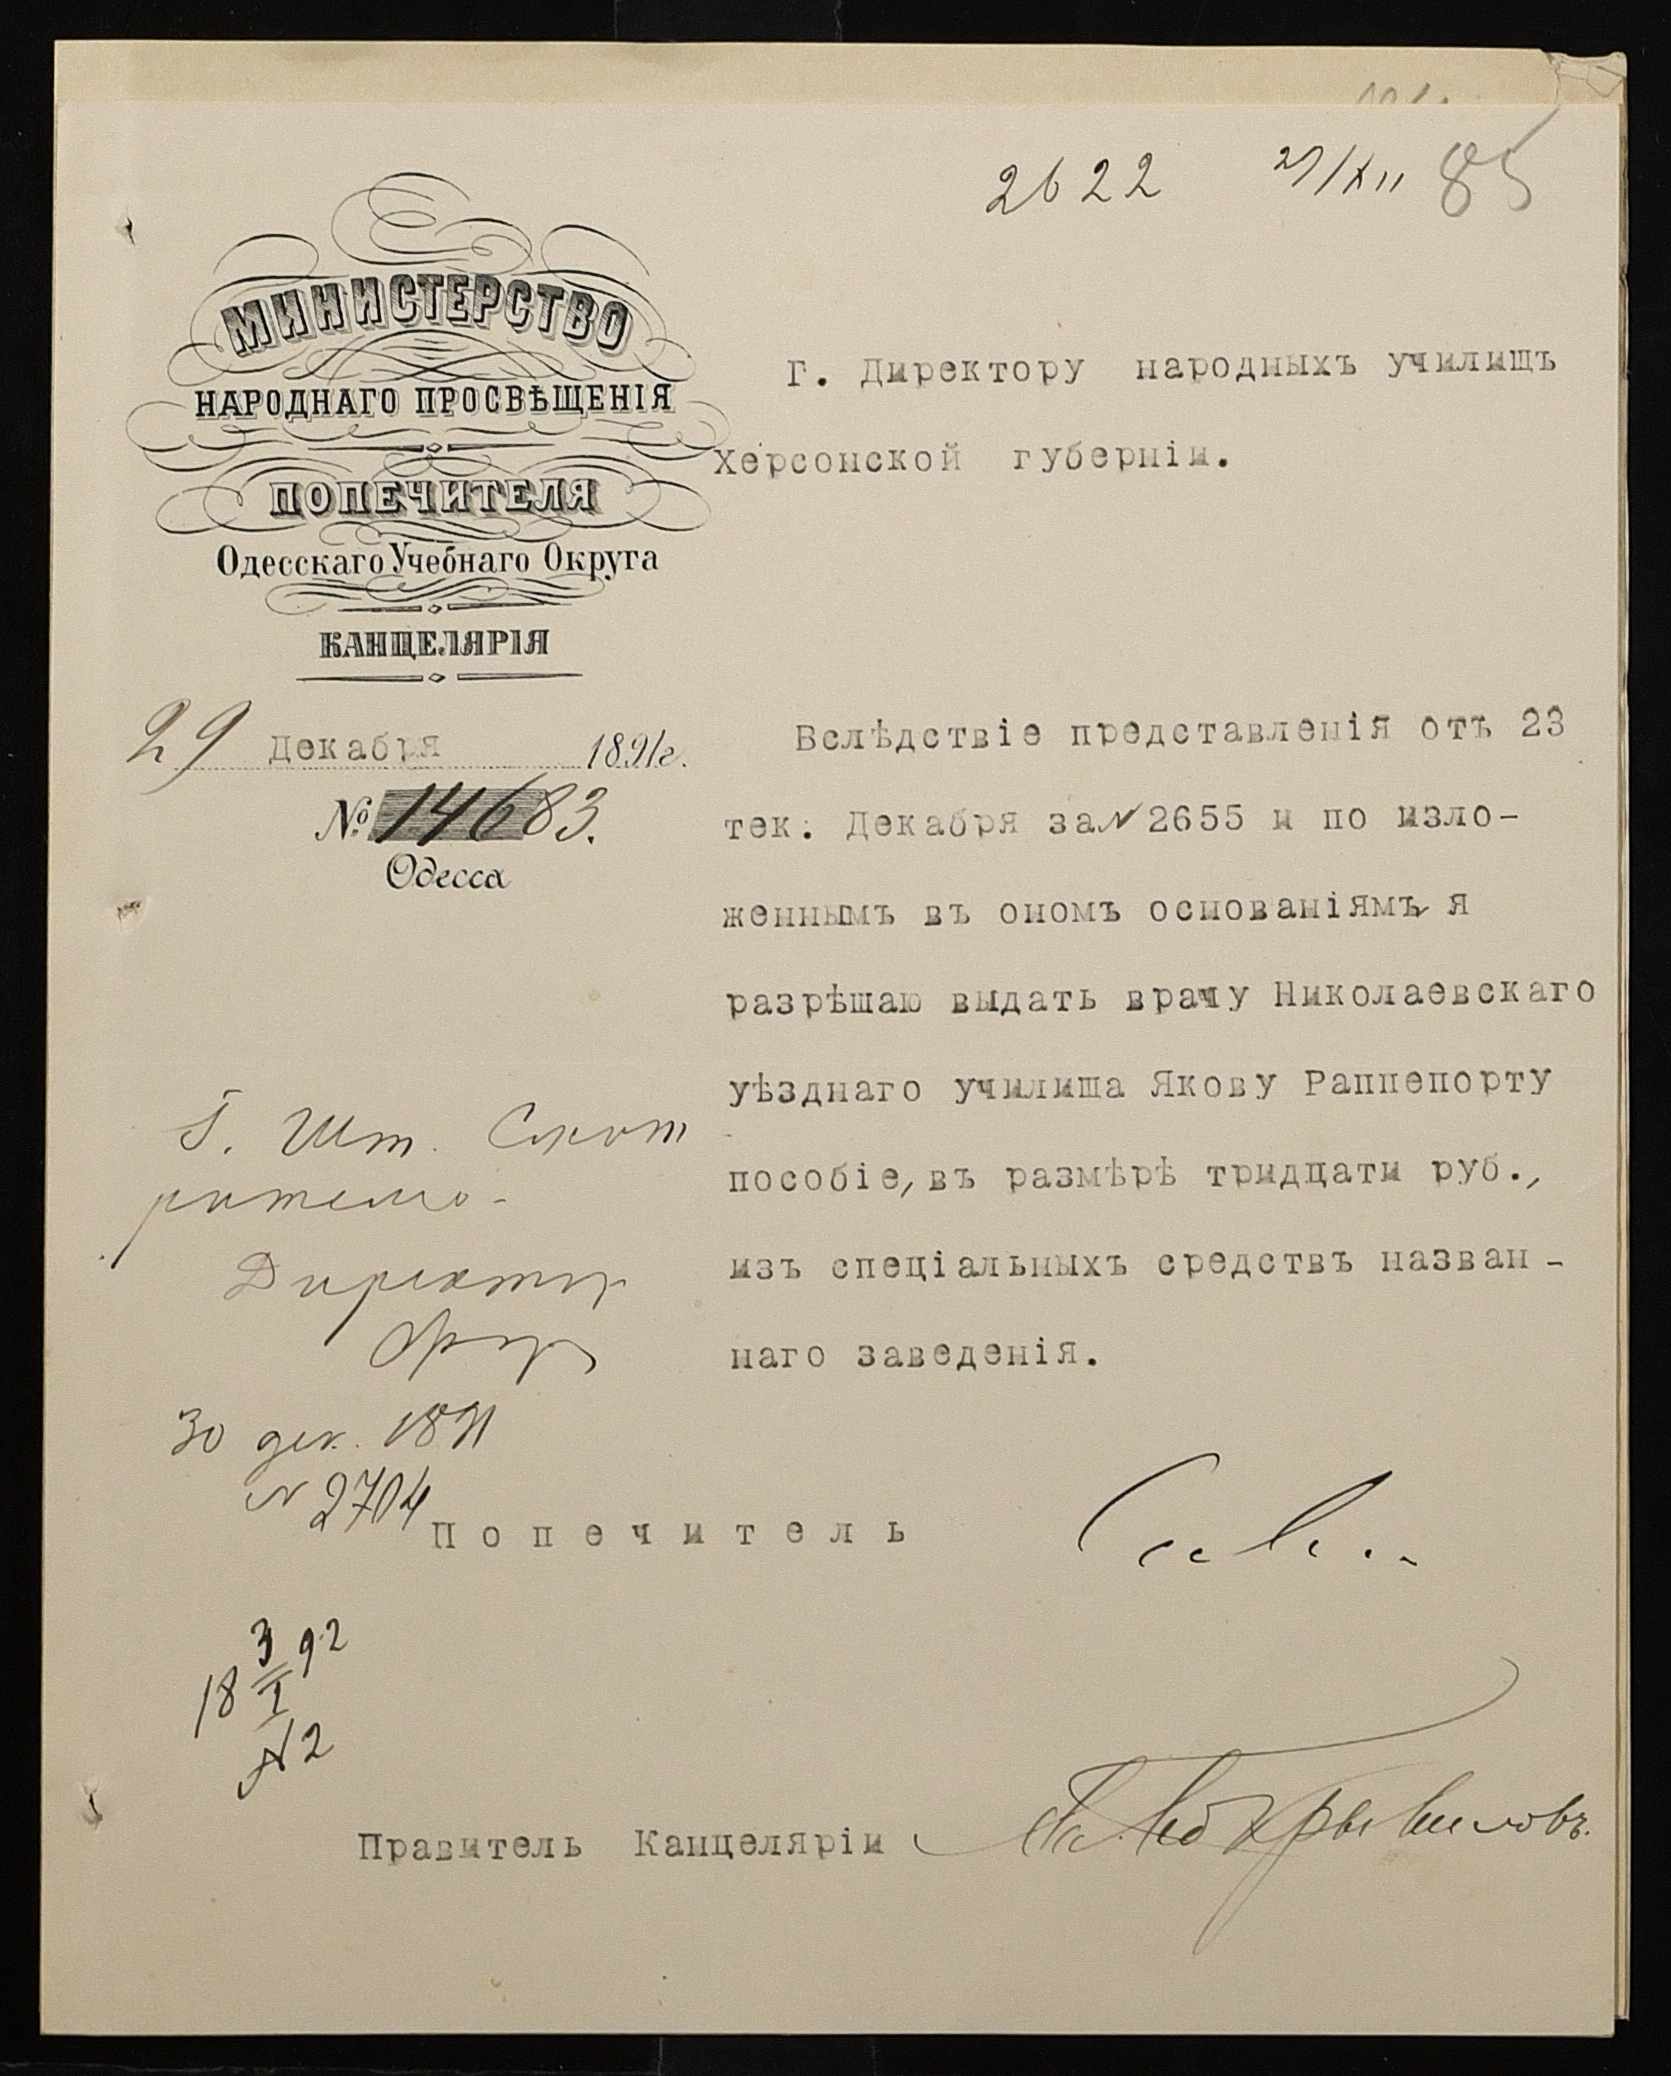 2622 85
МИНИСТЕРСТВО
НАРОДНАГО ПРОСВѢЩЕНІЯ
ПОПЕЧИТЕЛЯ
Одесскаго Учебнаго Округа
КАНЦЕЛЯРІЯ
29 Декабря 1891г.
№ 14683.
Одесса
Г. Директору народныхъ училищъ
Херсонской губерніи.
Вслѣдствіе представленія отъ 23
тек. Декабря за № 2655 и по изло-
женнымъ въ ономъ основаніямъ я
разрѣшаю выдать врачу Николаевскаго
уѣзднаго училища Якову Раппепорту
пособіе, въ размѣрѣ тридцати руб.,
изъ спеціальныхъ средствъ назван-
наго заведенія.
Г. Шт. Смот
рителю
Директор
30 дек. 1891
№ 2704
Попечитель
18 3/I 92
№ 2
Правитель Канцеляріи